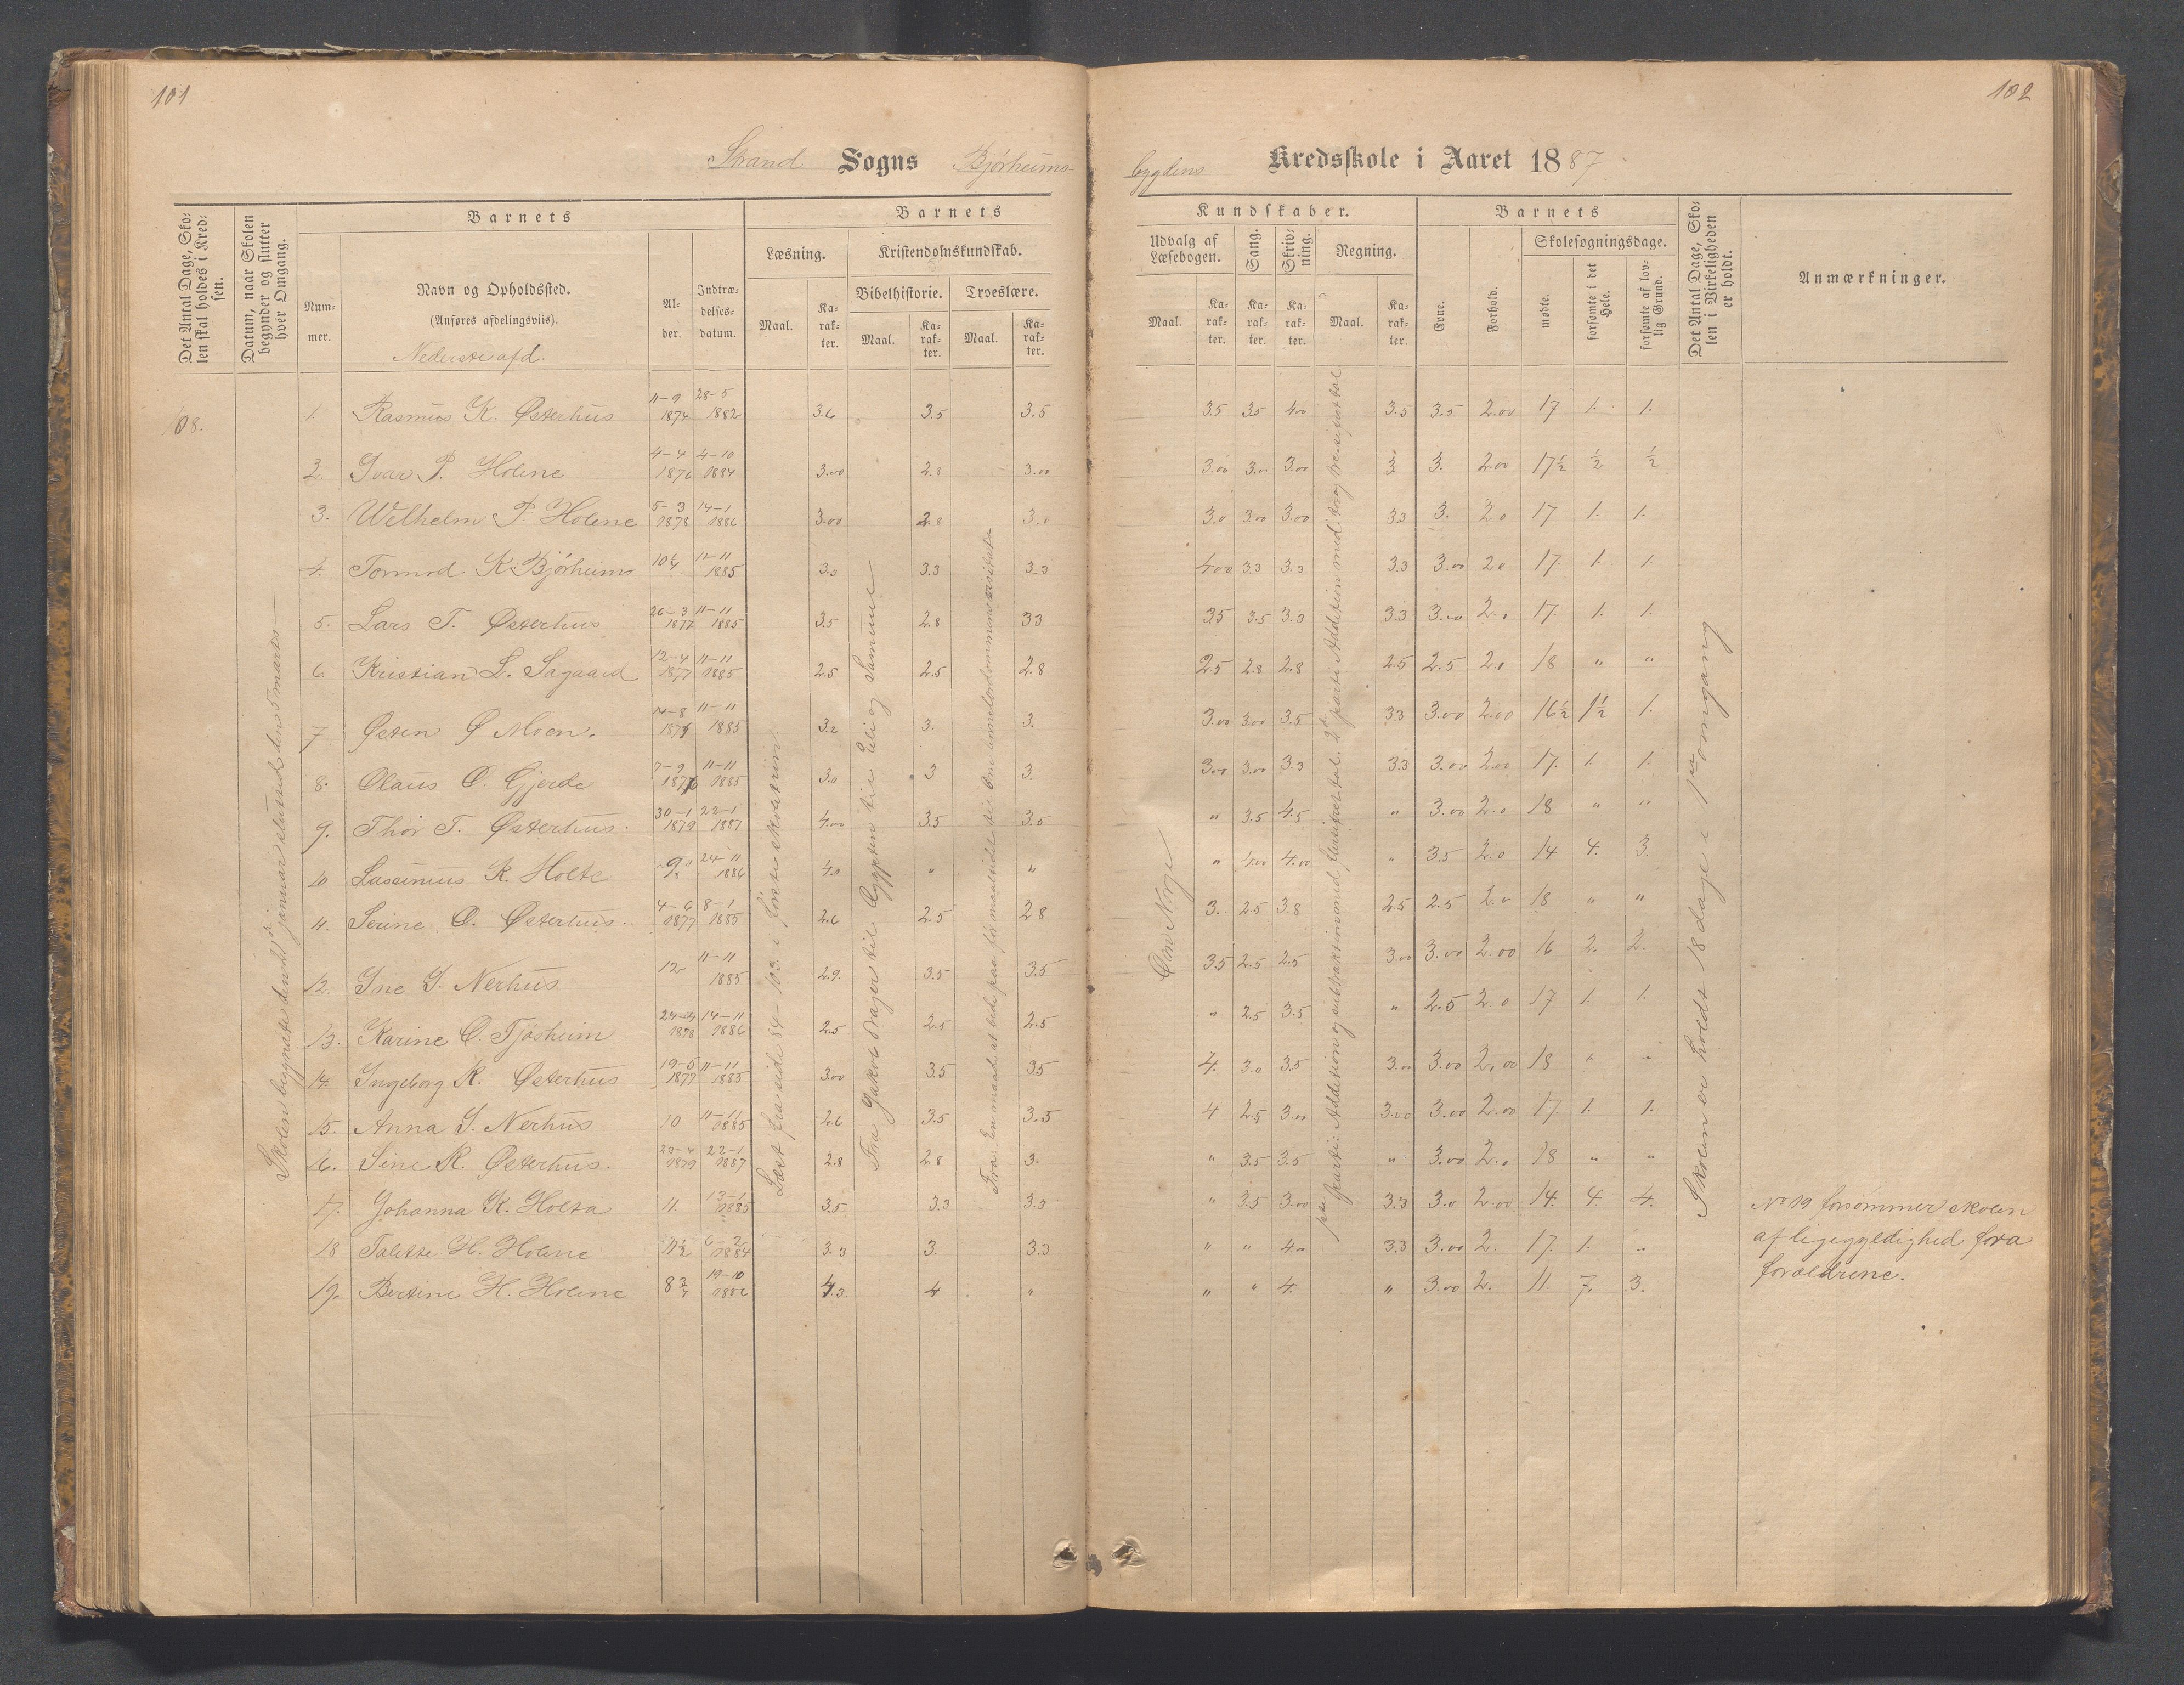 101
102
Strand Sogns Bjørheims-
bygdens Kredsskole i Aaret 1887.
Det Antal Dage, Skolen skal holdes i Kredsen.
Datum, naar Skolen begynder og slutter hver Omgang.
Barnets
Nummer.
Navn og Opholdssted.
(Anføres afdelingsviis).
Nederste afd.
Alder.
Indtrædelsesdatum.
Barnets
Læsning.
Kristendomskundskab.
Bibelhistorie.
Troeslære.
Maal. Karakter. Maal. Karakter. Maal. Karakter.
Kundskaber.
Udvalg af Læsebogen.
Sang.
Skrivning.
Regning.
Maal. Karakter. Karakter. Karakter. Maal. Karakter.
Barnets
Evne.
Forhold.
Skolesøgningsdage.
mødte.
forsømte i det Hele.
forsømte af lovlig Grund.
Det Antal Dage, Skolen i Virkeligheden er holdt.
Anmærkninger.
108.
Skolen begynte den 11 januar sluttede den 5 marts
Læst fra side 84-103 i første skoletrin
Fra Jakob drager til Ægypten til Eli og Samuel
Om Norge
Skolen er holdt 18 dage i 1ste omgang
1. Rasmus K. Østerhus 11-9 1874 28-5 1882 3.6 3.5 3.5 3.5 3.5 4.00 3.5 3.5 2.00 17 1. 1.
2. Ivar P. Holene 4-4 1876 4-10 1884 3.00 2.8 3.00 3.00 3.00 3.00 3 3. 2.00 17½ ½ ½
3. Welhelm P. Holene 5-3 1878 14-1 1886 3.00 2.8 3.0 3.0 3.00 3.00 3.3 3. 2.0 17 1. 1.
4. Tormod K. Bjørheim 11-11 1885 3.3 3.3 3.3 4.00 3.3 3.3 3.3 3.00 2.0 17. 1. 1.
5. Lars T. Østerhus 26-3 1877 11-11 1885 3.5 2.8 3.3 3.5 3.5 3.3 3.3 3.00 2.0 17. 1. 1.
6. Kristian L. Sagaard 12-4 1877 11-11 1885 2.5 2.5 2.8 2.5 2.8 2.8 2.5 2.5 2.0 18 " "
7 Østen Ø Moen. 11-11 1885 3.2 3. 3. 3.00 3.00 3.5 3.3 3.00 2.00 16½ 1½ 1.
8. Olaus O. Gjerde 7-9 1876 11-11 1885 3.0 3 3. 3.00 3.00 3.3 3.3 3.00 2.00 17. 1. 1.
9. Thor T. Østerhus. 30-1 1879 22-1 1887 4.00 3.5 3.5 " 3.5 4.5 " 3.00 2.0 18 " "
10 K. Holte 9. 24-11 1886 4.0 " " " 4.00 4.00 " 3.5 2.0 14 4. 3.
11. Serine O. Østerhus. 4-6 1877 8-1 1885 2.6 2.5 2.8 3. 2.5 3.8 2.5 2.5 2.0 18 " "
12. Ine S. Nerhus 12 11-11 1885 2.9. 3.5 3.5 3.5 2.5 2.5 3.00 3.00 2.00 16 2. 2.
13. Karine O. Tjøsheim 24-4 1878 14-11 1886 2.5 2.5 2.5 " 2.5 3.5 " 2.5 2.0 17 1. 1.
14. Ingeborg K. Østerhus 19-5 1877 11-11 1885 3.00 3.5 3.5 4. 3.0 3.5 3.00 3.00 2.00 18 " "
15. Anna S. Nerhus 10 11-11 1885 2.6 3.5 3.5 4 2.5 3.00 3.00 3.00 2.00 17. 1. 1.
16. Sine K. Østerhus. 1879 22-1 1887 2.8 2.8 3. " 3.5 3.5 " 3.00 2.0 18 " "
17. Johanna K. Holta 11. 13-1 1885 3.5 3.3 3.3 " 3.5 3.00 3.3 3.0 2.00 14. 4. 4.
18 Talette H. Holene 11½ 6-2 1884 3.3 3. 3.3 " " 4.00 3.3 3.00 2. 17. 1. "
19. Bertine H. Holene 8¾ 19-10 1886 4.3. 4 " " " 4. " 3.00 2. 11. 7. 3.
No 19 forsømmer skolen
af ligegyldighed fra
forældrene.